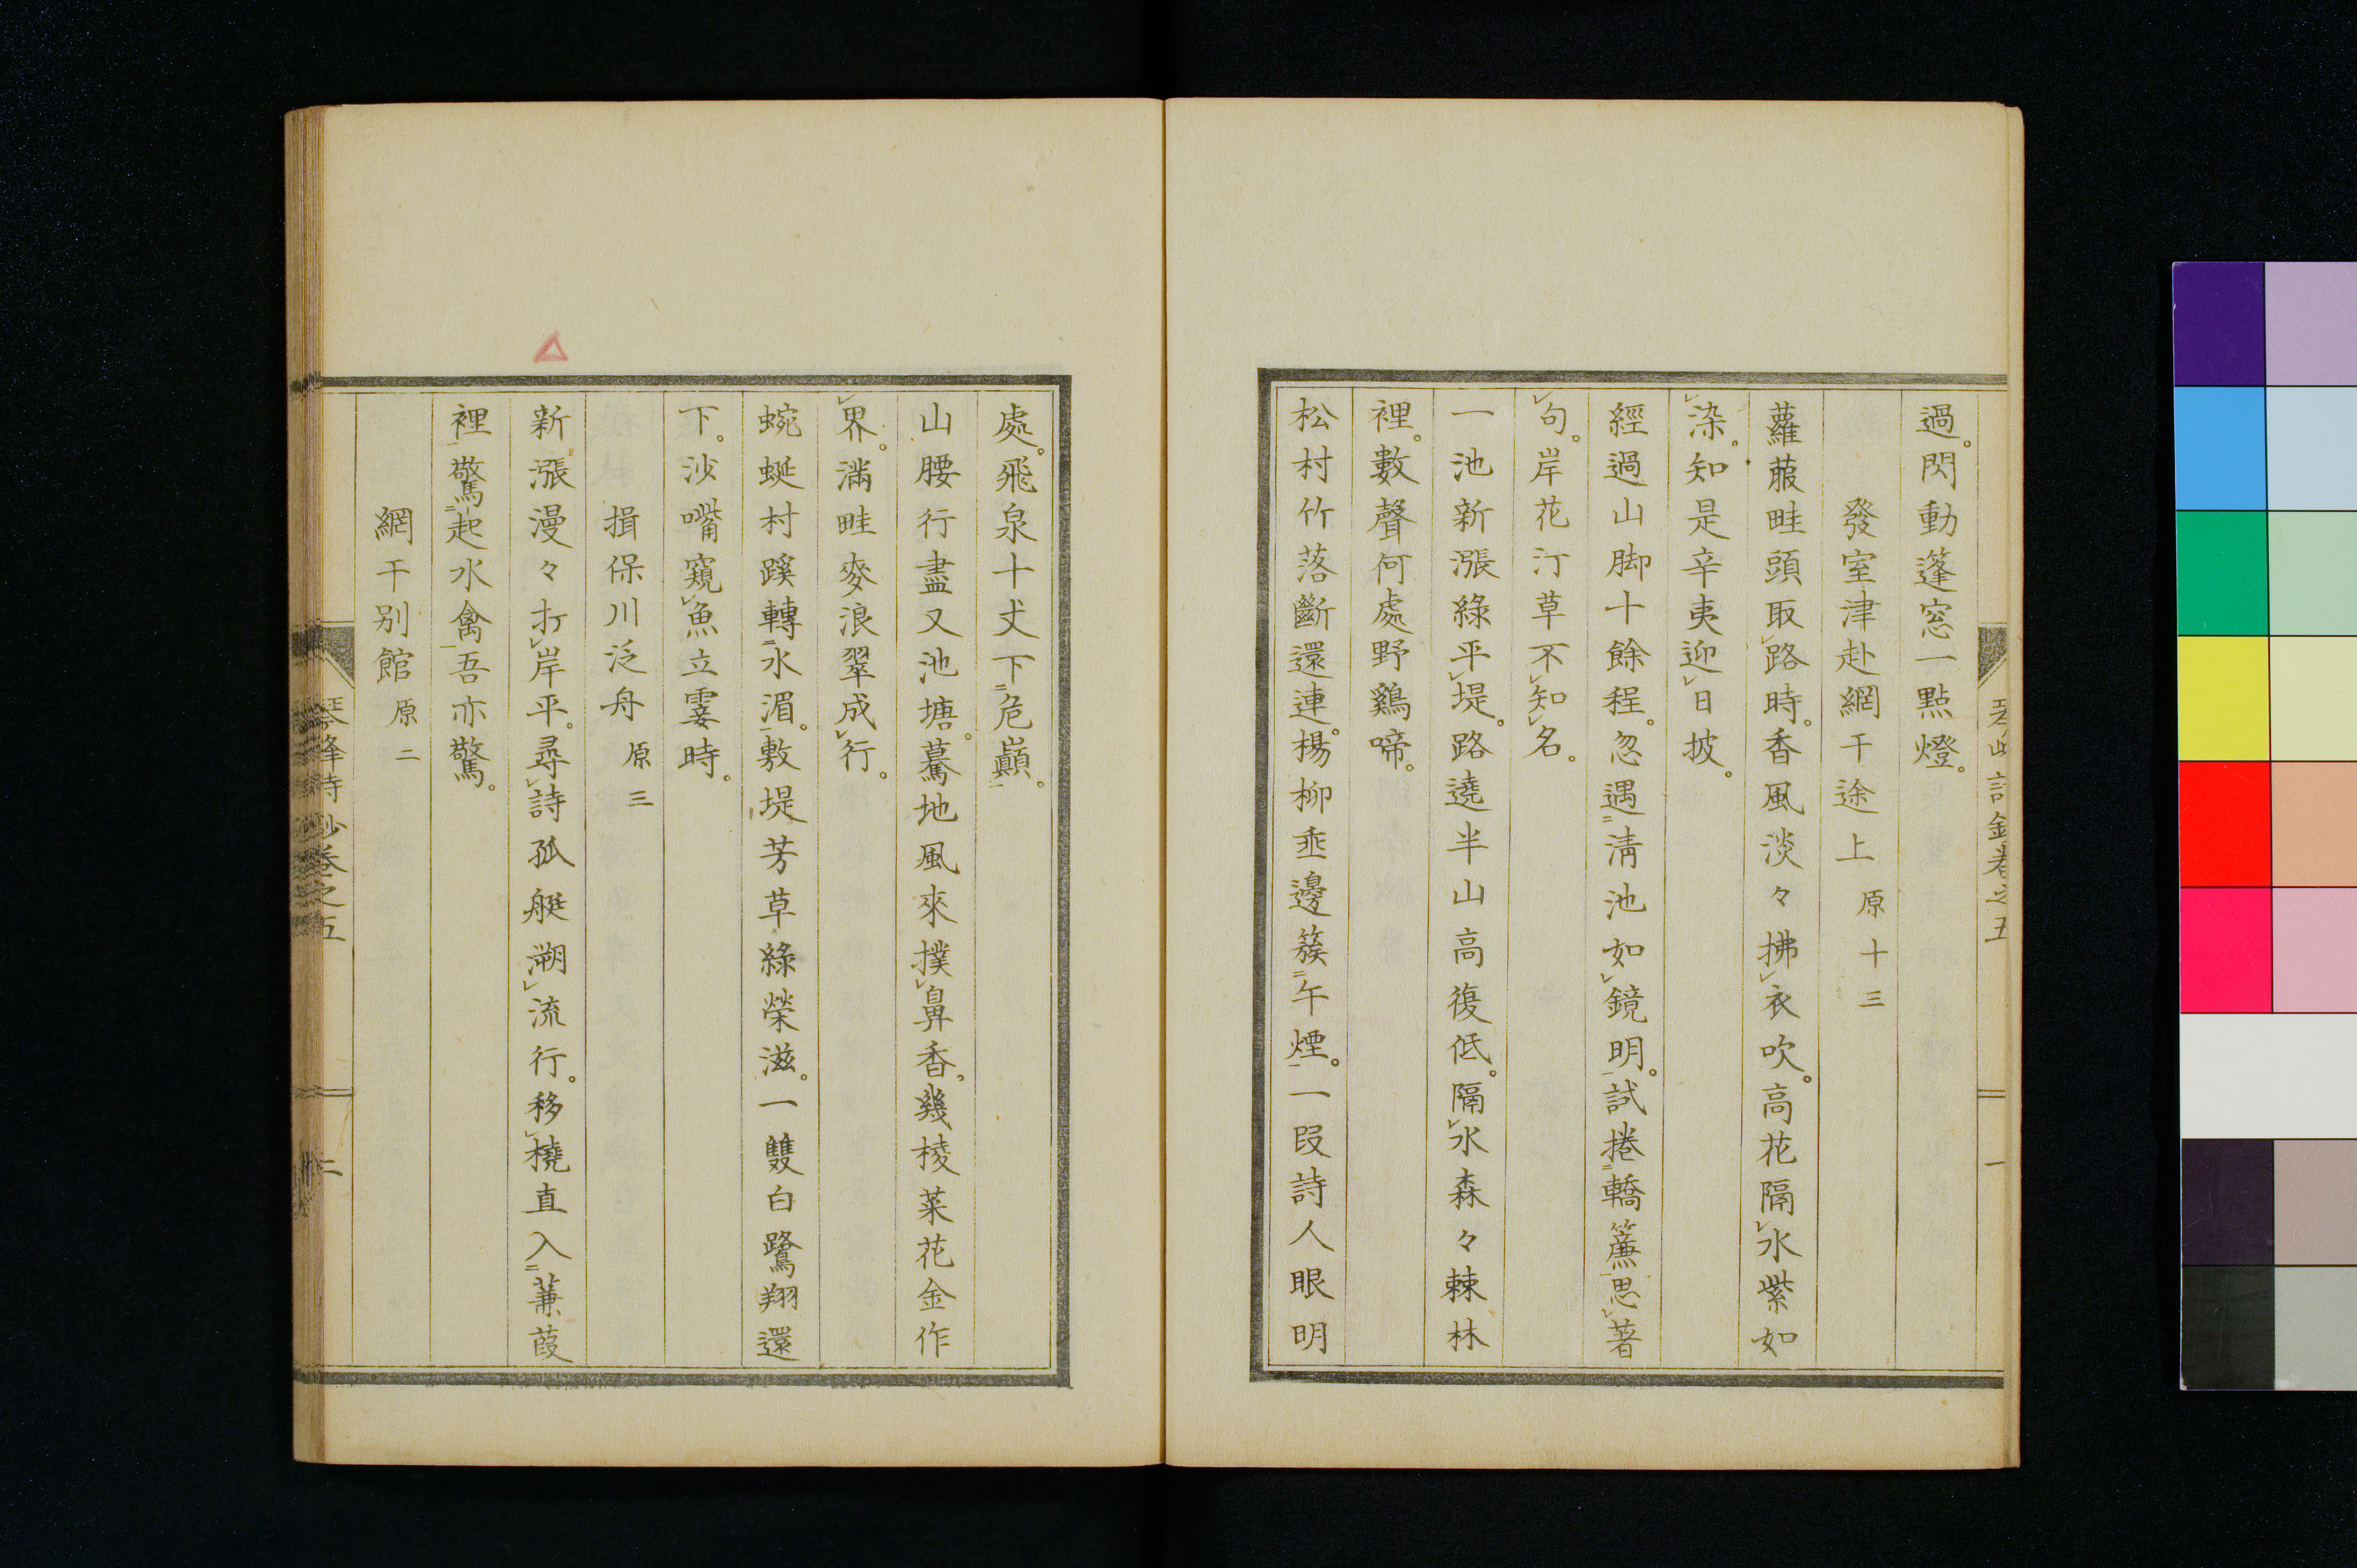 過。閃動篷窓一點燈。
發室津赴網干途上 原十三
蘿菔畦頭取路時。香風淡々拂衣吹。高花隔水紫如
染。知是辛夷迎日披。
經過山脚十餘程。忽遇淸池如鏡明。試捲轎簾思著
句。岸花汀草不知名。
一池新漲綠平堤。路遶半山高復低。隔水森々棘林
裡。數聲何處野鷄啼。
松村竹落斷還連。楊柳垂邊簇午煙。一段詩人眼明
處。飛泉十丈下危巓。
山腰行盡又池塘。驀地風來撲鼻香。幾棱菜花金作
界。滿畦麥浪翠成行。
蜿蜒村蹊轉水湄。敷堤芳草綠榮滋。一雙白鷺翔還
下。沙嘴窺魚立霎時。
揖保川泛舟 原三
新漲漫々打岸平。尋詩孤艇溯流行。移橈直入蒹葭
裡驚起水禽吾亦驚。
網干別館 原二
琴峰詩鈔卷之五
二